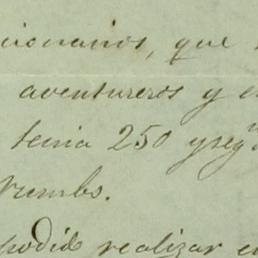 cionarios, que
aventureros y e
tenia 250 y seg
rumbo.
podido realizar e